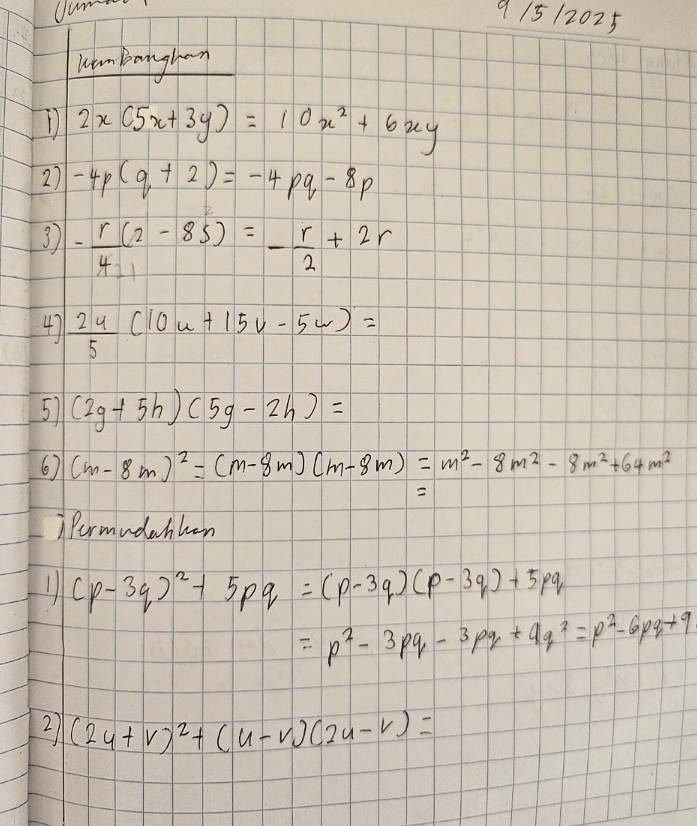 9/5/2025
Kembangkan
1) 2x(5x+3y) = 10x² + 6xy
2) -4p(q+2) = -4pq - 8p
3) -r/4(2 - 8s) = -r/2 + 2r
4) 2u/5 (10u + 15v - 5w) =
5) (2g+5h)(5g-2h) =
6) (m-8m)² = (m-8m)(m-8m) = m² - 8m² - 8m² + 64m²
=
Permudahkan
1) (p-3q)² + 5pq = (p-3q)(p-3q) + 5pq
= p² - 3pq - 3pq + 9q² = p² - 6pq + 9
2) (2u+v)² + (u-v)(2u-v) =